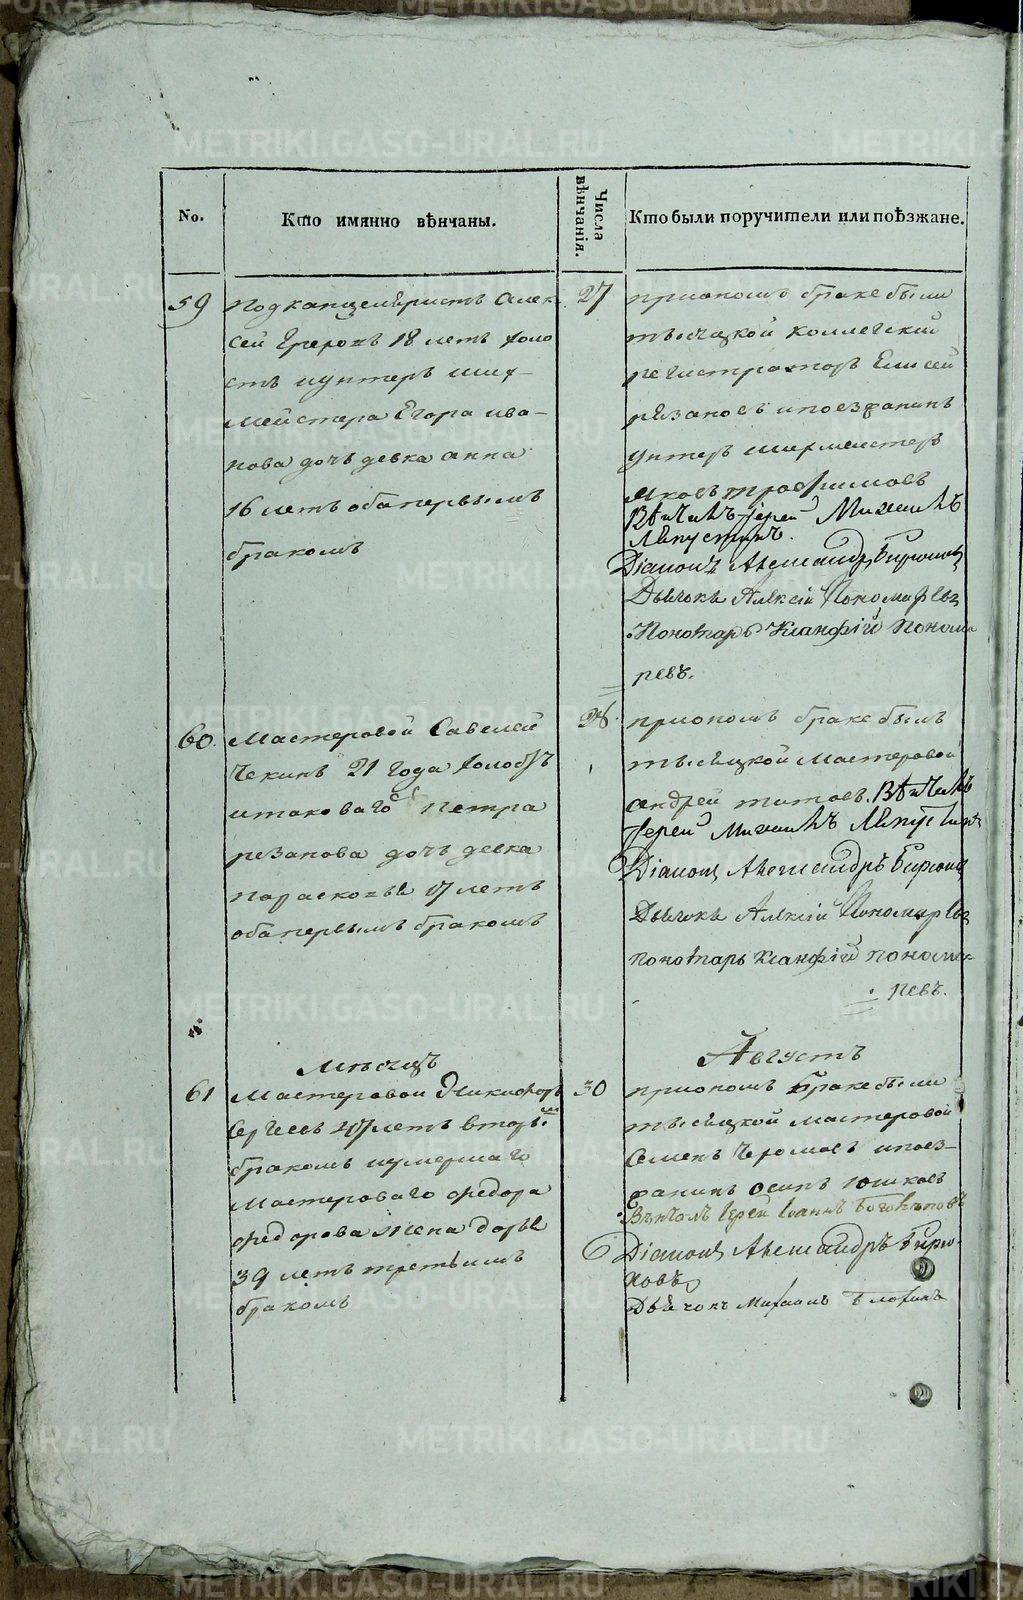 No.
Кто имянно вѣнчаны.
Числа вѣнчанія.
Кто были поручители или поѣзжане.
59
подканцеляристъ Алек-
сей 18 летъ холо
стъ иунтеръ ших-
мейстера Егора ива-
нова дочь девка анна
16 летъ оба первымъ
бракомъ
27
приономъ браке были
тысяцкой коллегский
регистраторъ Елисей
резановъ ипоезжанинъ
унтеръ шихмейстеръ
яковъ трофимовъ
Вѣнчалъ Іерей Михаилъ
Діаконъ Александръ Бирюковъ
Дьячокъ Алексій Пономаревъ
Пономарь Ксанфій Понома
ревъ.
60.
Мастеровой Савелей
Чекинъ 21 года холостъ
итаковаго Петра
резанова дочь девка
парасковья 17 летъ
оба первымъ бракомъ
28.
приономъ браке былъ
тысяцкой Мастеровой
андрей титовъ. Вѣнчалъ
Іерей Михаилъ
Діаконъ Александръ Бирюковъ
Дьячокъ Алексій Пономаревъ
пономарь Ксанфій понома-
ревъ.
Мѣсяцъ
Августъ
61
Мастеровой Никифоръ
Сергеевъ 47 летъ вторы
бракомъ иумершаго
Мастероваго Федора
федорова жена дарья
39 летъ третьимъ
бракомъ
30
приономъ браке были
тысяцкой мастеровой
Семенъ ипоез-
жанинъ осипъ юшковъ
Вѣнчалъ Іерей Іоаннъ
Діаконъ Александръ Бирю-
ковъ
Дьячокъ Михаилъ
METRIKI.GASO-URAL.RU